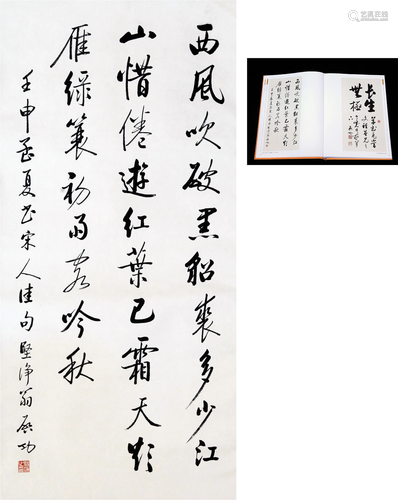 西風吹破黑貂裘多少江
山惜倦遊紅葉已霜天欲
雁綠蓑初雨客吟秋
壬申孟夏书宋人佳句堅浄翁启功
长生